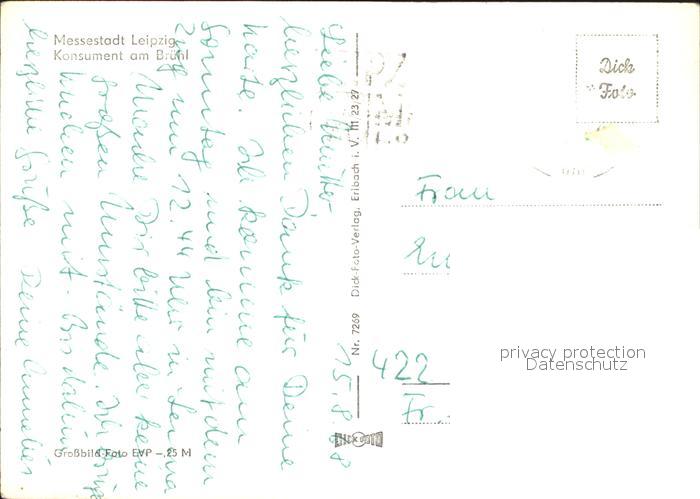 Messestadt Leipzig
Konsument am Brühl
15.8.68
Liebe Mutter
herzlichen Dank für Deine
Karte. Ich komme am
Sonntag und bin mit dem
Zug um 12.44 Uhr in
Mache Dir bitte aber keine
großen Umstände. Ich bringe
Kuchen mit. Bis dahin
herzliche Grüße Deine Annelies
Großbild-Foto EVP -,25 M
Nr. 7269 Dick-Foto-Verlag, Erlbach i. V. III 23/27
DICK FOTO
Dick
Foto
Frau
422
Fr.
privacy protection
Datenschutz